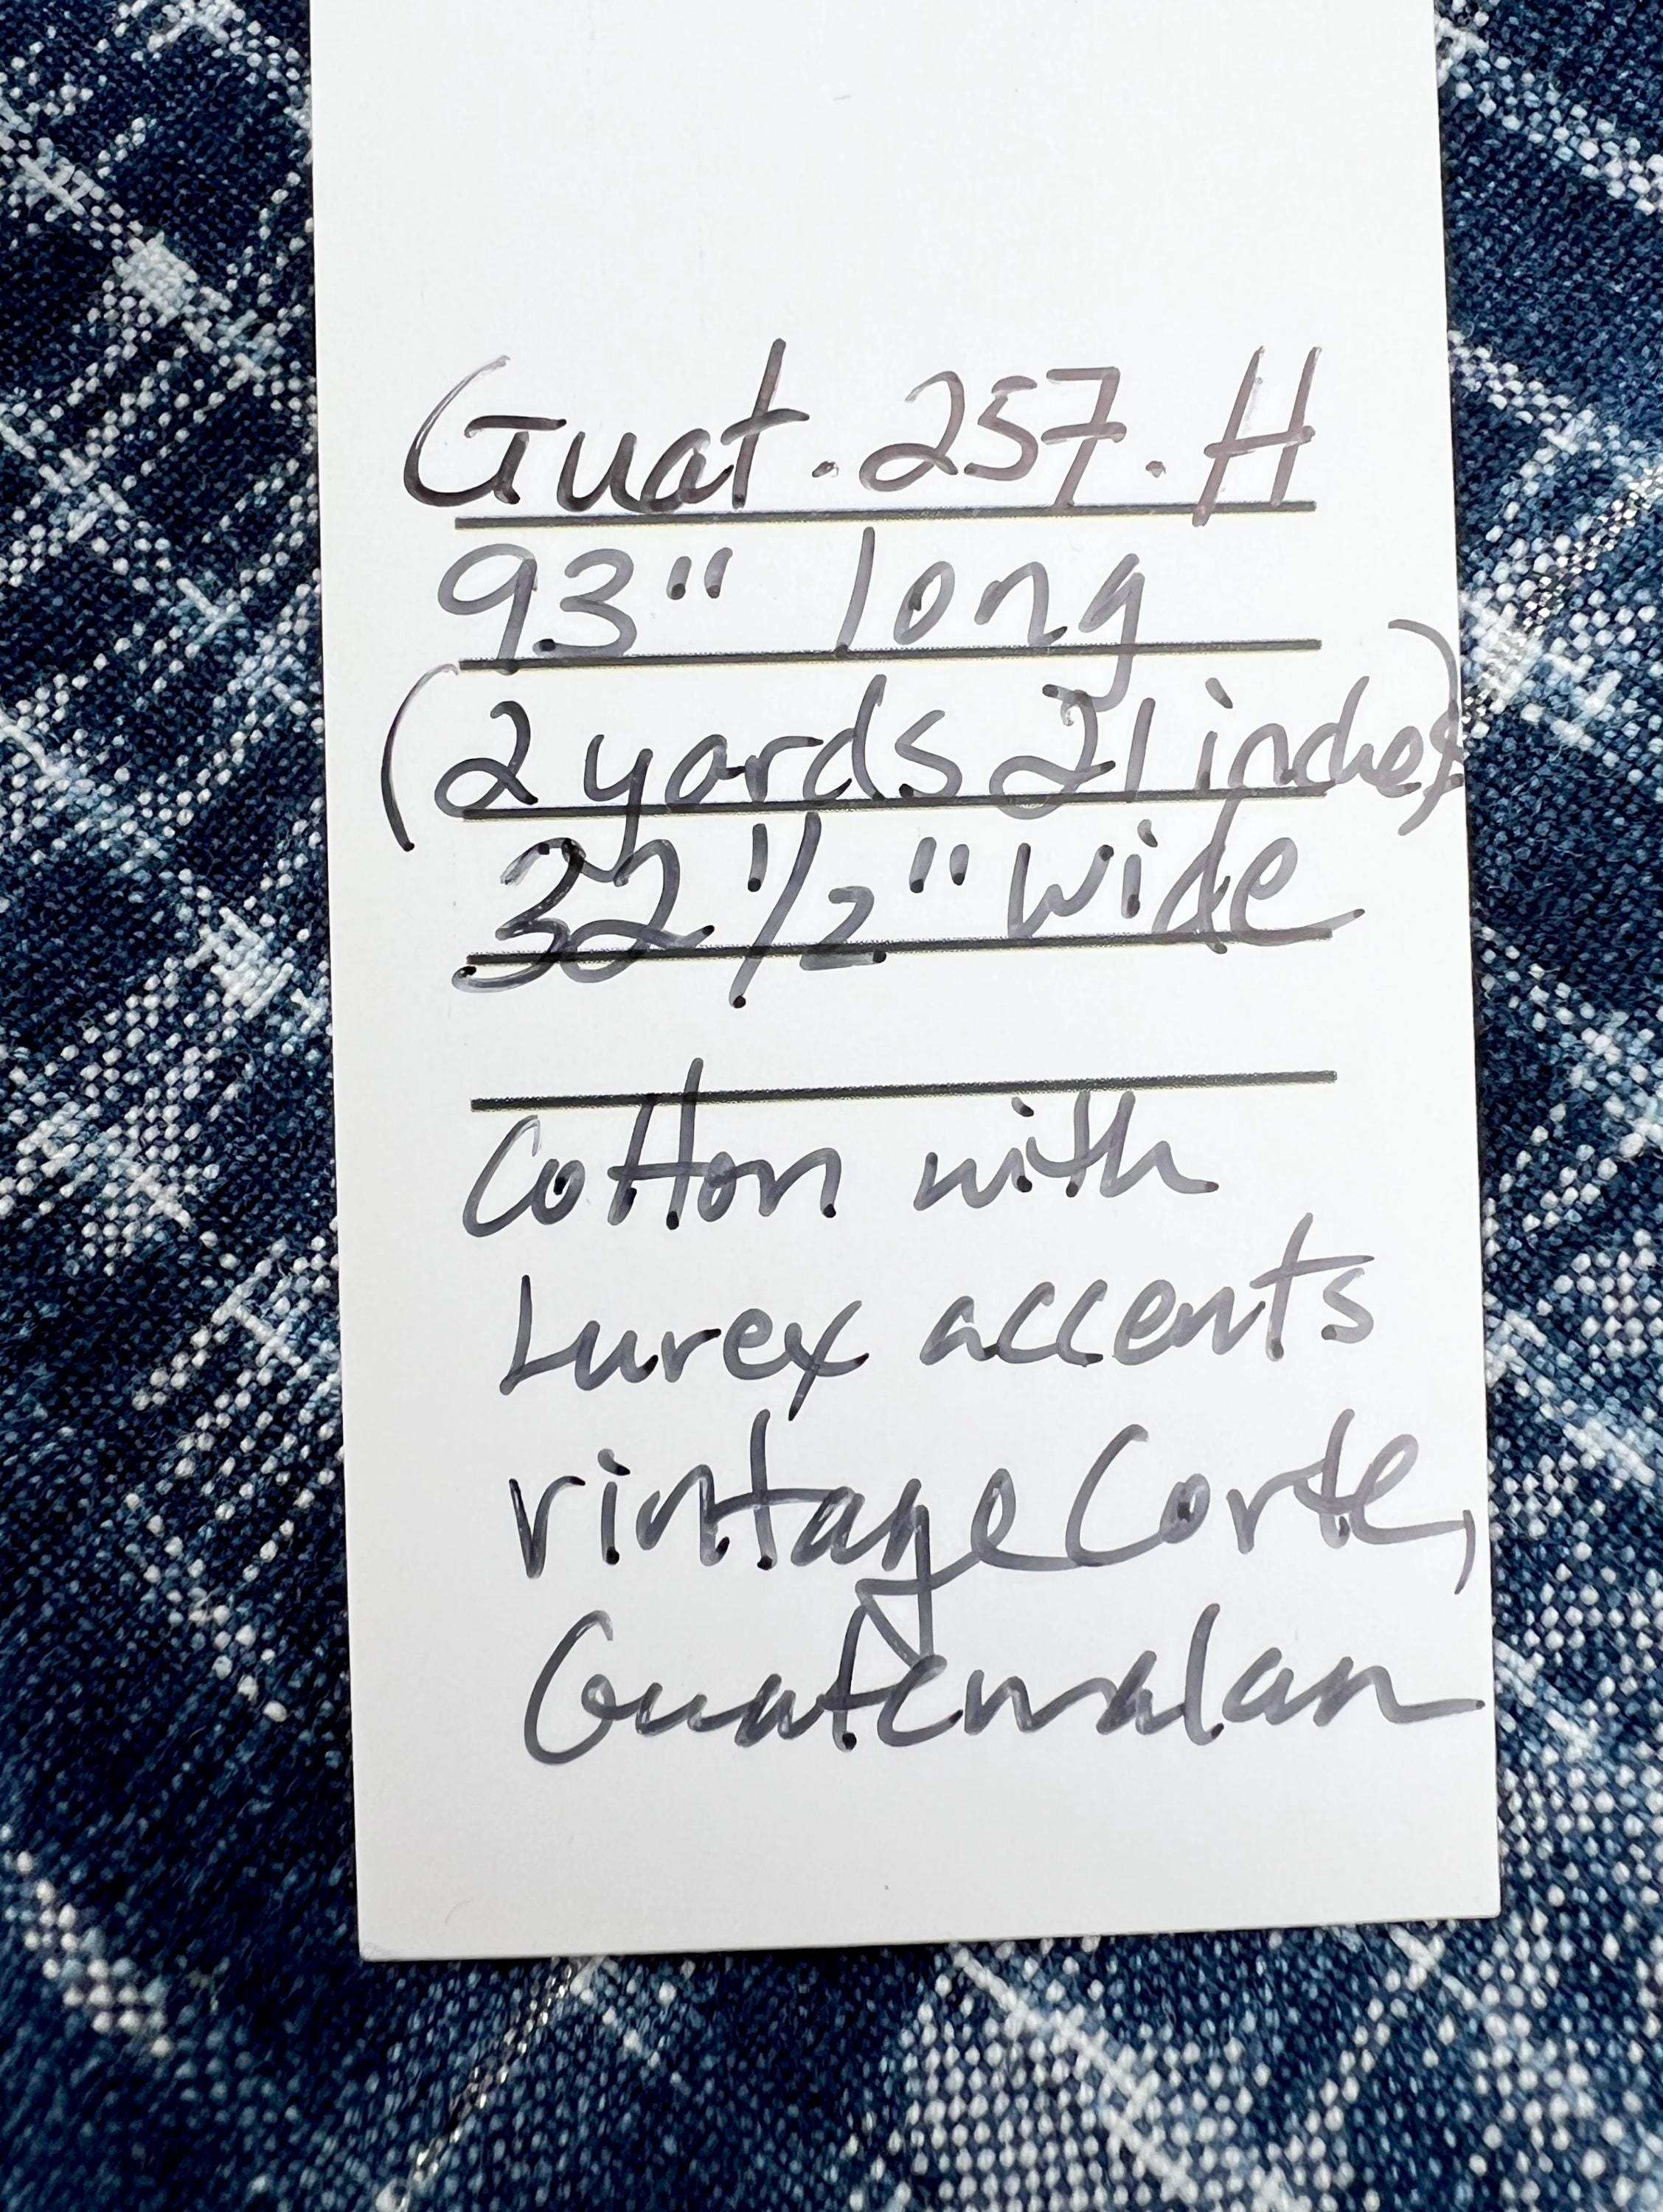 Guat. 257. H
93" long
(2 yards 21 inches)
32 1/2" wide
Cotton with
Lurex accents
vintage Corte,
Guatemalan